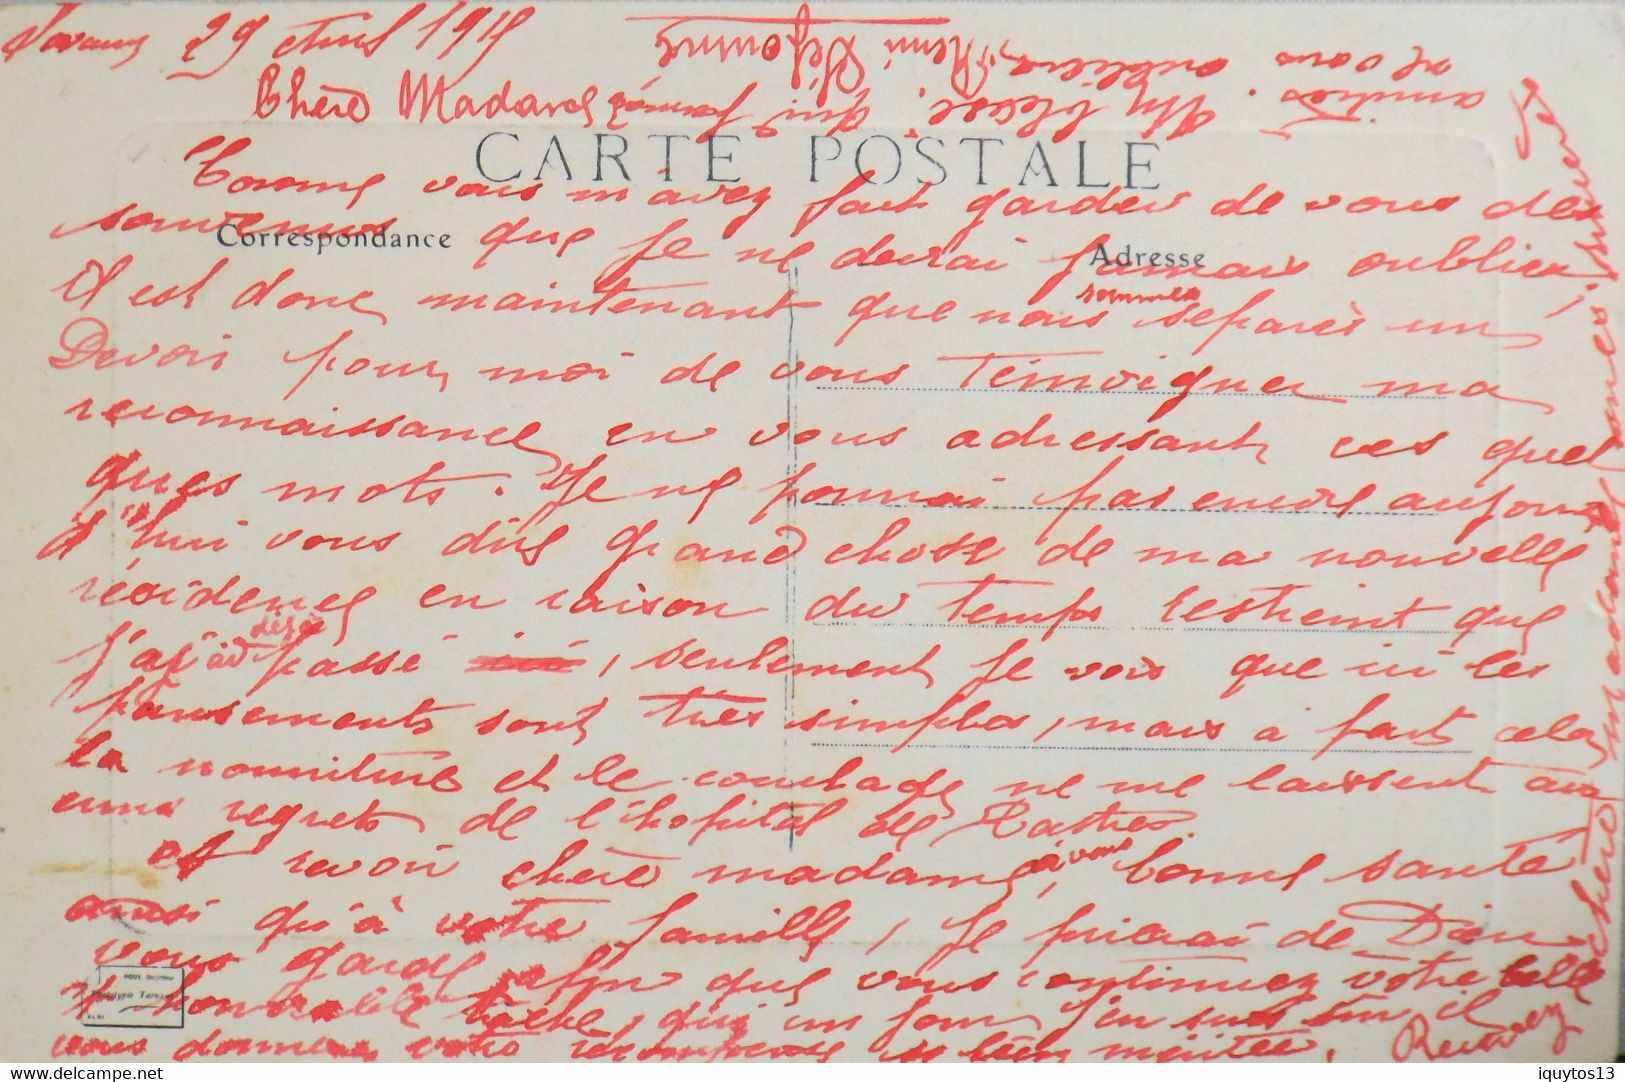 29 avril 1915
Chère Madame
CARTE POSTALE
Comme vous m'avez fait garder de vous des
Correspondance
Adresse
souvenirs que je ne devrai jamais oublier,
Il est donc maintenant que nous sommes séparés un
Devoir pour moi de vous témoigner ma
reconnaissance en vous adressant ces quel
ques mots. Je ne pourrai pas encore aujour
d'hui vous dire grand chose de ma nouvelle
résidence en raison du temps restreint que
j'ai déjà passé ici, seulement je vois que ici les
pansements sont très simples, mais à part cela
la nourriture et le couchage ne me laissent au
cuns regrets de l'hopital de Castres.
et revoir chère madame, à vous bonne santé
ainsi qu'à votre famille, je prierai de Dieu
vous garde afin que vous continuez votre belle
et honorable tâche, qui un jour j'en suis sûr il
vous donnera votre récompense si bien méritée. Recevez
chère madame mes sincères
amitiés. Un blessé qui jamais
ne vous oubliera. Rémi
POUX, Albi
Phototypie Tarnaise
delcampe.net
iquytos13